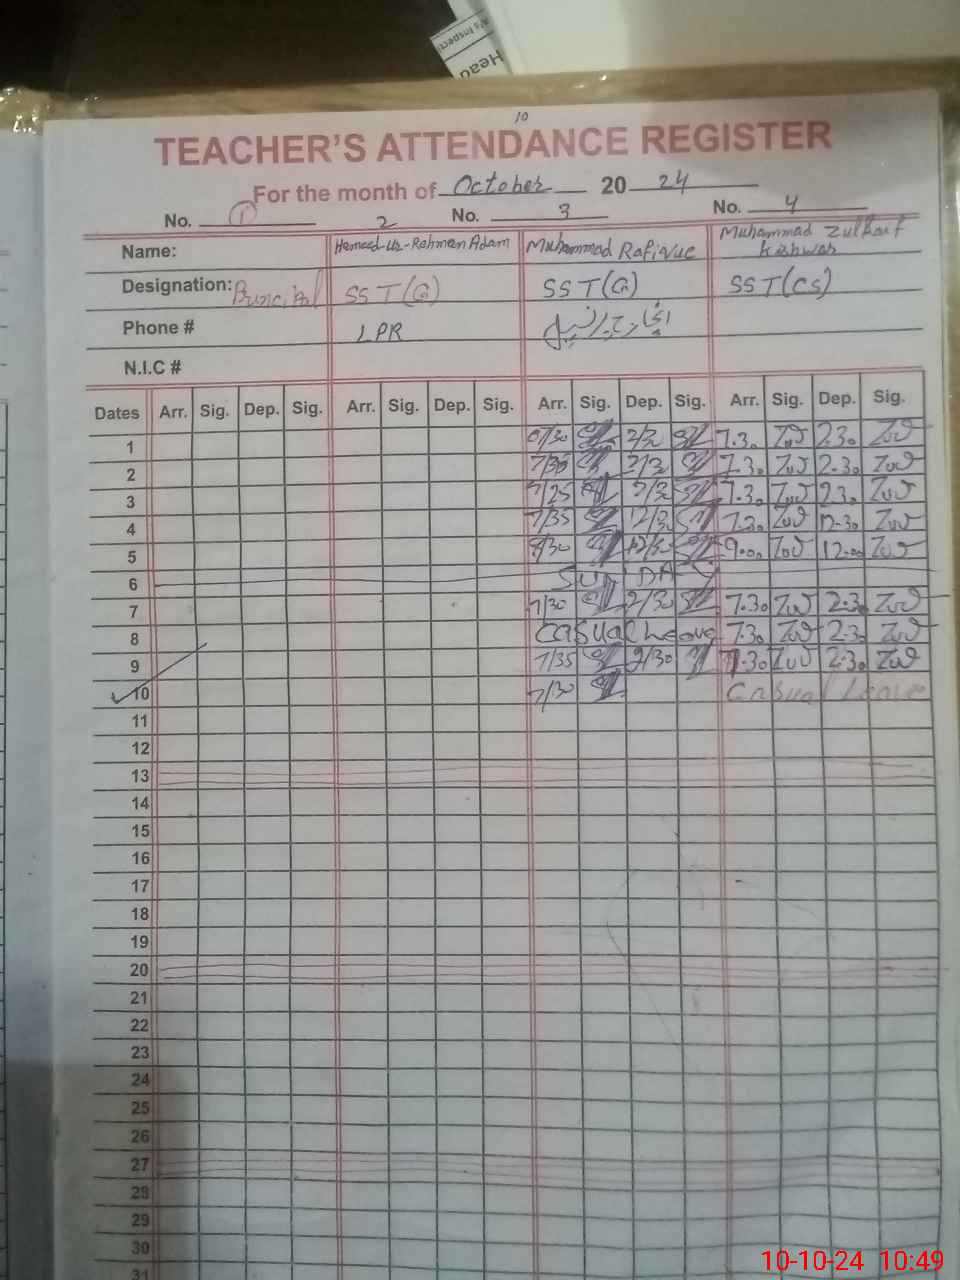 Head
10
TEACHER'S ATTENDANCE REGISTER
For the month of October 2024
No. 1 2 No. 3 No. 4
Name: Hameed-Ur-Rahman Adam Muhammad Rafique Muhammad Zulkaif Kishwar
Designation: Principal SST(G) SST(G) SST(CS)
Phone # LPR انچارج پرنسپل
N.I.C #
Dates Arr. Sig. Dep. Sig. Arr. Sig. Dep. Sig. Arr. Sig. Dep. Sig. Arr. Sig. Dep. Sig.
1 2/30 7.30 2.30
2 7/35 2/30 7.30 2.30
3 7/25 2/30 7.30 2.30
4 7/35 12/30 7.30 12.30
5 8/30 12/30 9.00 12.00
6 SUNDAY
7 7/30 2/30 7.30 2.30
8 Casual Leave 7.30 2.30
9 7/35 2/30 7.30 2.30
10 7/30 Casual Leave
11
12
13
14
15
16
17
18
19
20
21
22
23
24
25
26
27
28
29
30
31
10-10-24 10:49